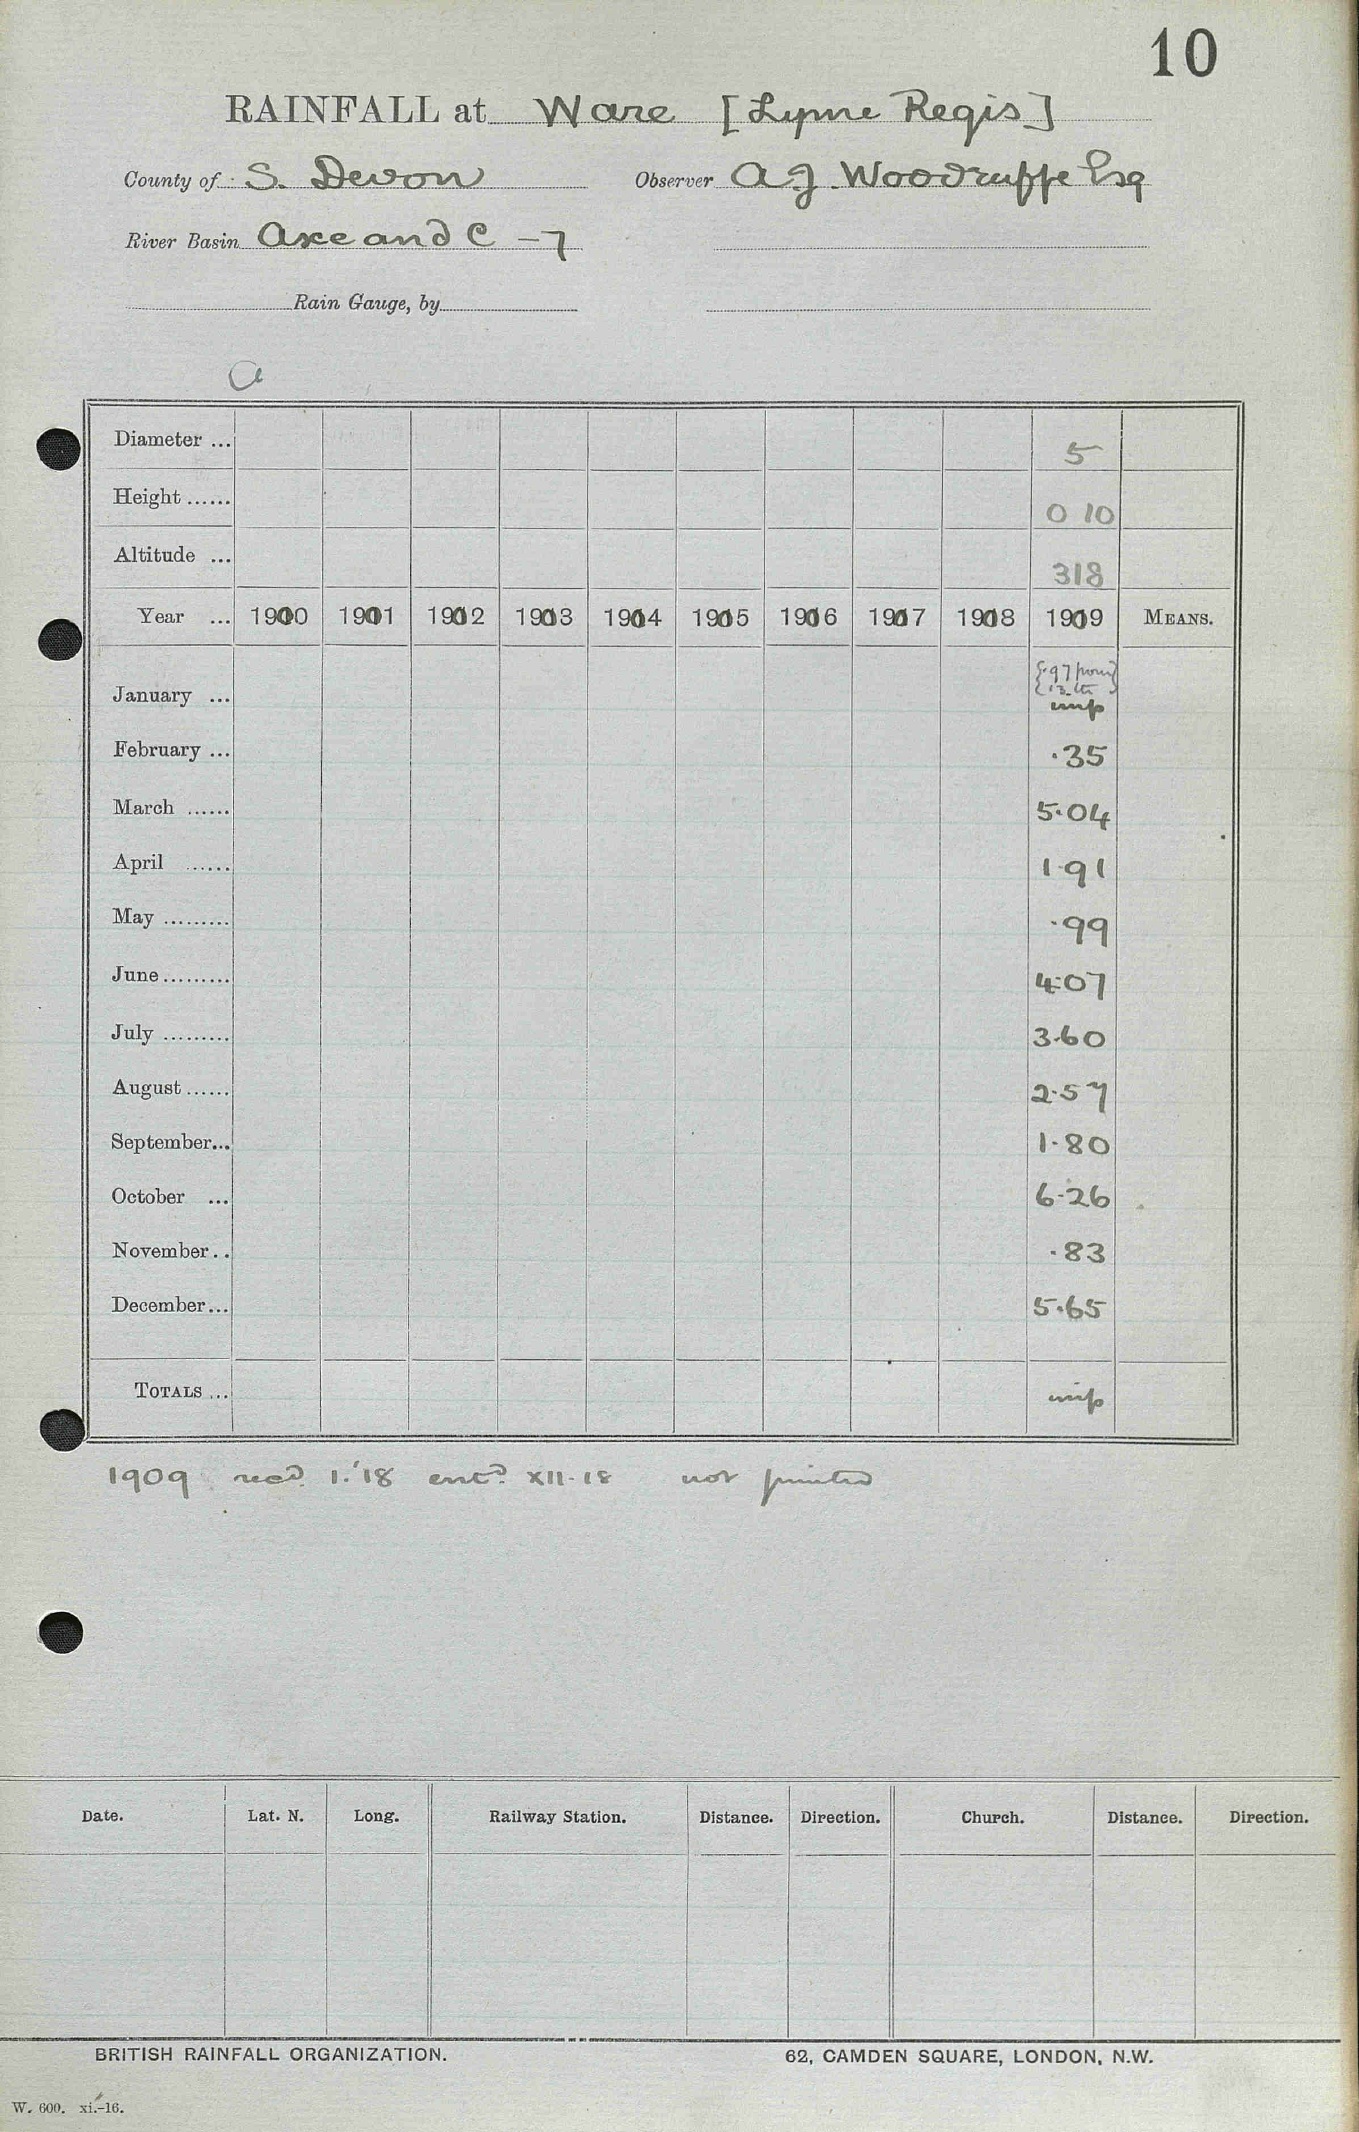 10
RAINFALL at Ware [Lyme Regis]
County of S. Devon Observer A J Woodruffe Esq
River Basin Axe and C -7
Rain Gauge, by
a
Diameter ... 5
Height ...... 0 10
Altitude ... 318
Year ... 1900 1901 1902 1903 1904 1905 1906 1907 1908 1909 MEANS.
{.97 from}
{13th}
January ... imp
February ... .35
March ...... 5.04
April ...... 1.91
May ......... .99
June ......... 4.07
July ......... 3.60
August ...... 2.57
September... 1.80
October ... 6.26
November.. .83
December... 5.65
TOTALS ... imp
1909 recd. 1.'18 entd. XII.18 not printed
Date. Lat. N. Long. Railway Station. Distance. Direction. Church. Distance. Direction.
BRITISH RAINFALL ORGANIZATION. 62, CAMDEN SQUARE, LONDON, N.W.
W. 600. xi.-16.